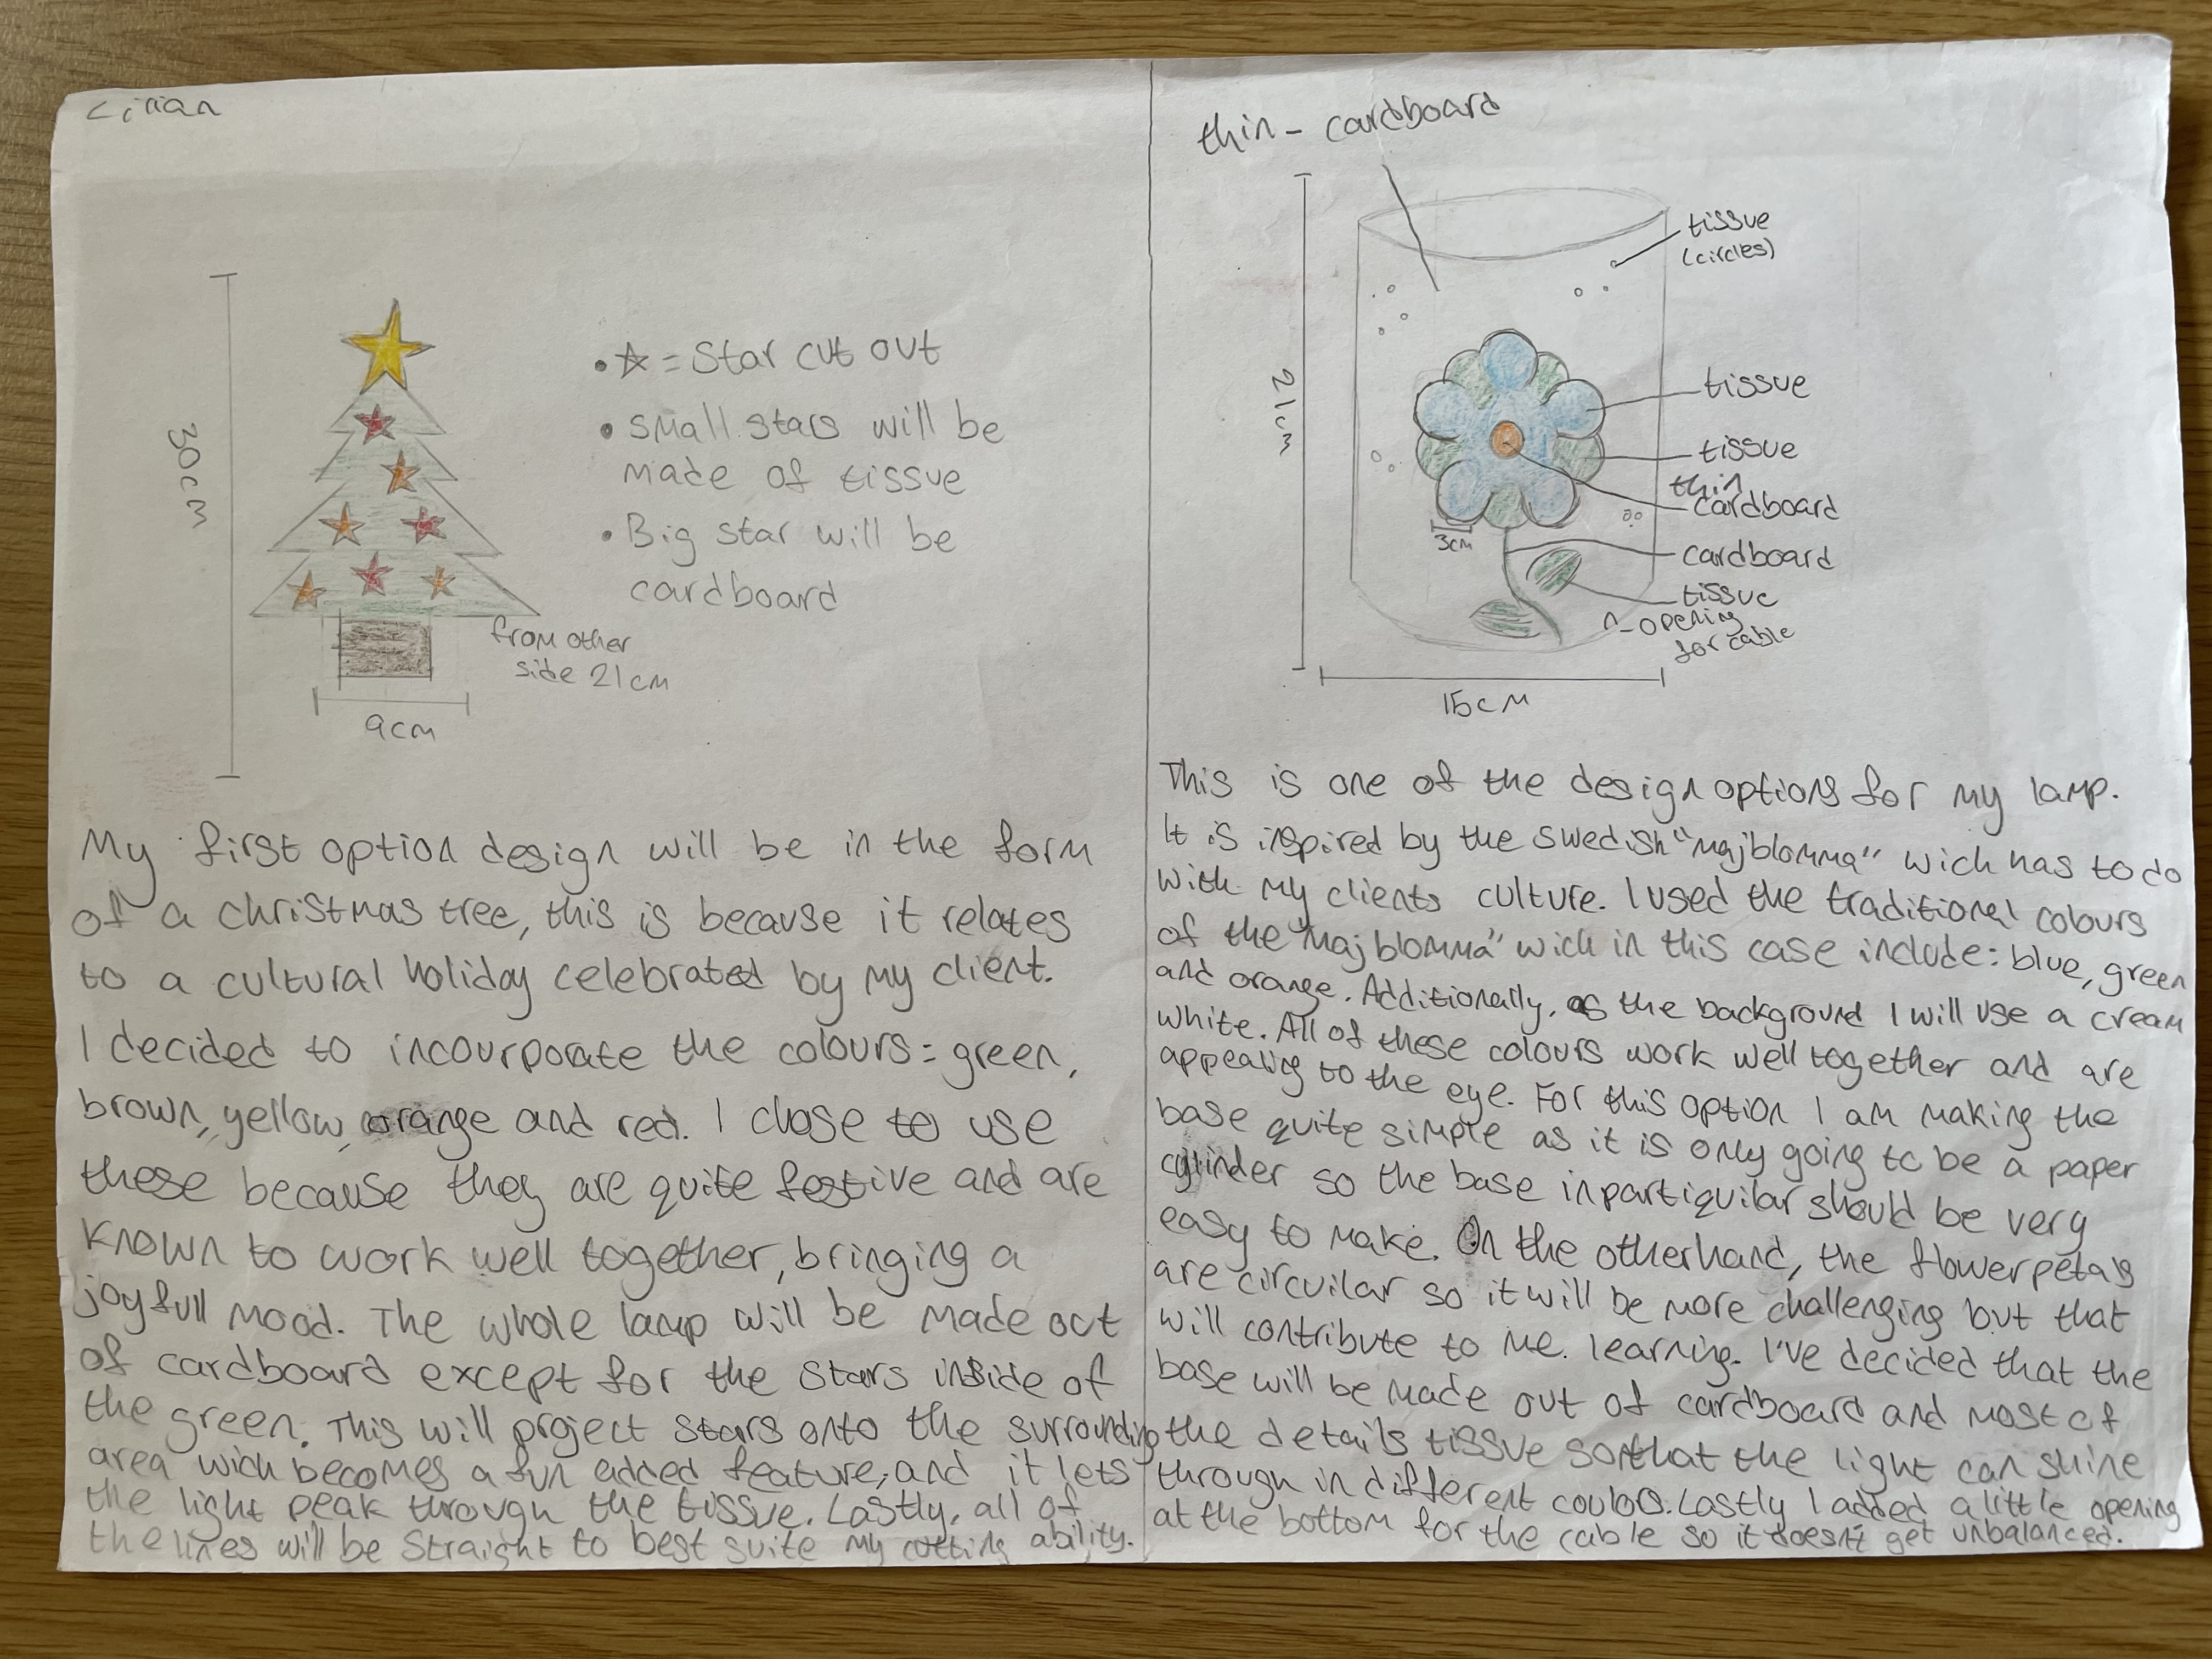 Lilian
30cm
• ☆ = Star cut out
• small stars will be
made of tissue
• Big star will be
cardboard
from other
side 21cm
9cm
My first option design will be in the form
of a christmas tree, this is because it relates
to a cultural holiday celebrated by my client.
I decided to incourporate the colours: green,
brown, yellow, orange and red. I chose to use
these because they are quite festive and are
known to work well together, bringing a
joyfull mood. The whole lamp will be made out
of cardboard except for the stars inside of
the green. This will project stars onto the surrounding
area wich becomes a fun added feature, and it lets
the light peak through the tissue. Lastly, all of
the lines will be straight to best suite my cutting ability.
thin - cardboard
tissue
(circles)
21cm
tissue
tissue
thin
cardboard
3cm
cardboard
tissue
opening
for cable
15cm
This is one of the design options for my lamp.
It is inspired by the swedish "majblomma" wich has to do
with my clients culture. I used the traditional colours
of the "majblomma" wich in this case include: blue, green
and orange. Additionally, as the background I will use a cream
white. All of these colours work well together and are
appealing to the eye. For this option I am making the
base quite simple as it is only going to be a paper
cylinder so the base inpartiquilar should be very
easy to make. On the otherhand, the flowerpetals
are circuilar so it will be more challenging but that
will contribute to me learning. I've decided that the
base will be made out of cardboard and most of
the details tissue so that the light can shine
through in different coulors. Lastly I added a little opening
at the bottom for the cable so it doesn't get unbalanced.